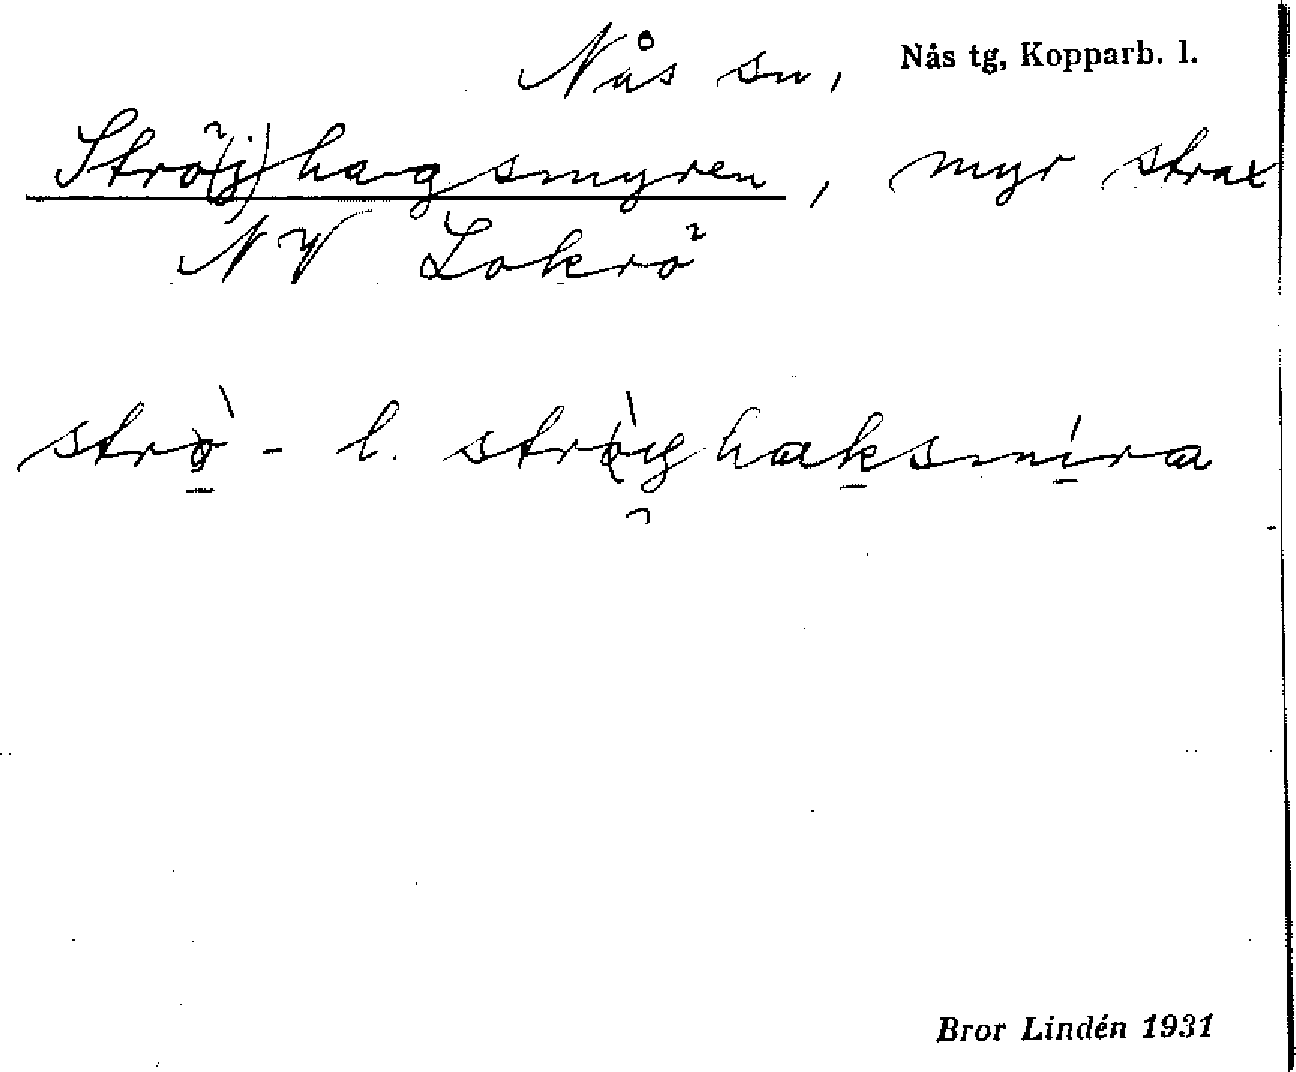 Nås sn, Nås tg, Kopparb. l.
Strö(j)hagsmyren, myr strax
NV Lokrö
strò̱- l. strò̱y haksmíra
Bror Lindén 1931